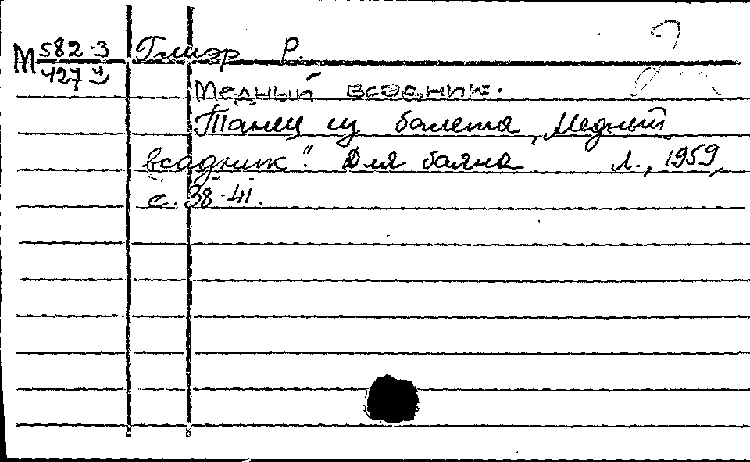 М 582-3 Глиэр Р.
427
Медный всадник.
Танец из балета „Медный
всадник". Для баяна Л., 1959,
с. 38-41.